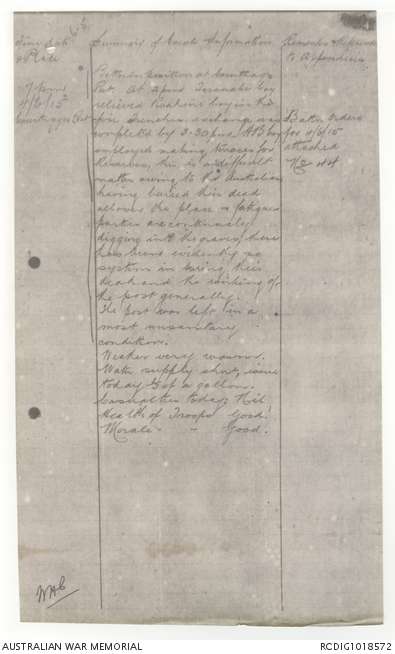 Time date & Place
Summary of Events & Information
Remarks & references to Appendices
7 pm
4/9/15
Courtneys Post
Battalion position at Courtneys
Post. At 2 pm Taranaki Coy
relieved Ruahine Coy in the
fire Trenches exchange was
completed by 3-30 pm. HB Coy
employed making terraces for
bivouacs, this is a difficult
matter owing to the Australians
having buried their dead
all over the place & fatigue
parties are continually
digging into the graves, there
has been evidently no
system in burying their
dead and the working of
the post generally.
The post was left in a
most unsanitary
condition.
Weather very warm.
Water supply short, issue
today ½ of a gallon.
Casualties today Nil
Health of Troops Good.
Morale " " Good.
Battn Orders
for 4/9/15
attached
No 44
WHC
AUSTRALIAN WAR MEMORIAL
RCDIG1018572